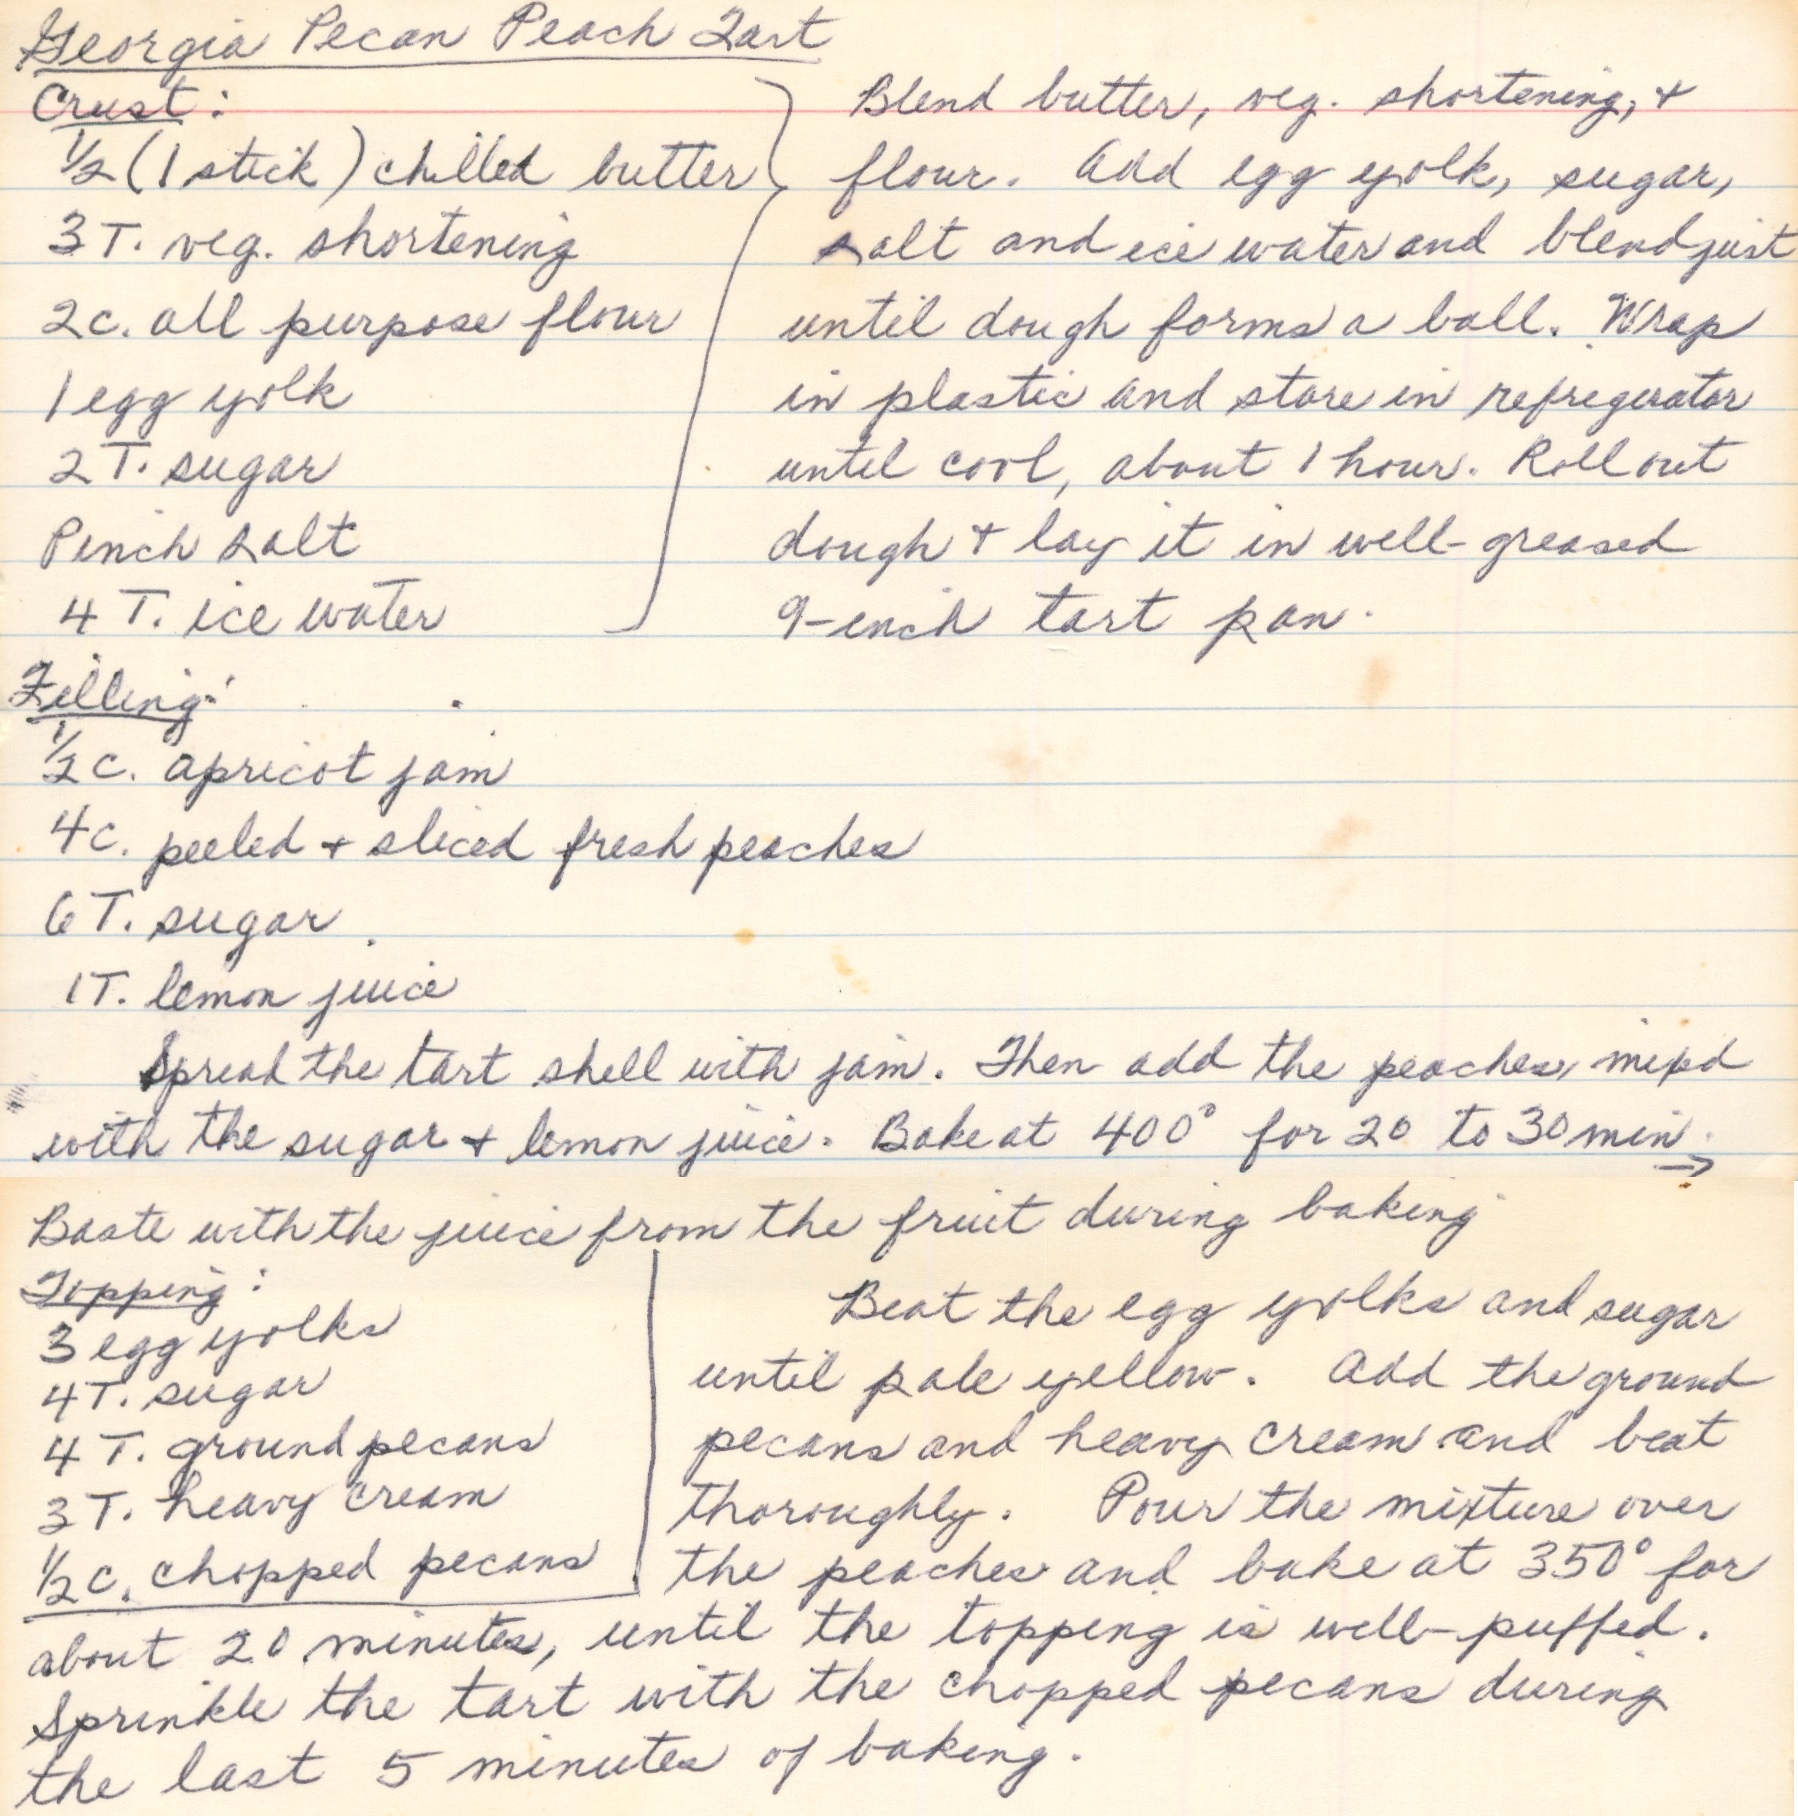 Georgia Pecan Peach Tart
Crust:
1/2 (1 stick) chilled butter
3 T. veg. shortening
2 c. all purpose flour
1 egg yolk
2 T. sugar
Pinch salt
4 T. ice water
Blend butter, veg. shortening, +
flour. Add egg yolk, sugar,
salt and ice water and blend just
until dough forms a ball. Wrap
in plastic and store in refrigerator
until cool, about 1 hour. Roll out
dough + lay it in well-greased
9-inch tart pan.
Filling:
1/2 c. apricot jam
4 c. peeled + sliced fresh peaches
6 T. sugar
1 T. lemon juice
Spread the tart shell with jam. Then add the peaches, mixd
with the sugar + lemon juice. Bake at 400° for 20 to 30 min.
→
Baste with the juice from the fruit during baking
Topping:
3 egg yolks
4 T. sugar
4 T. ground pecans
3 T. heavy cream
1/2 c. chopped pecans
Beat the egg yolks and sugar
until pale yellow. Add the ground
pecans and heavy cream and beat
thoroughly. Pour the mixture over
the peaches and bake at 350° for
about 20 minutes, until the topping is well-puffed.
Sprinkle the tart with the chopped pecans during
the last 5 minutes of baking.